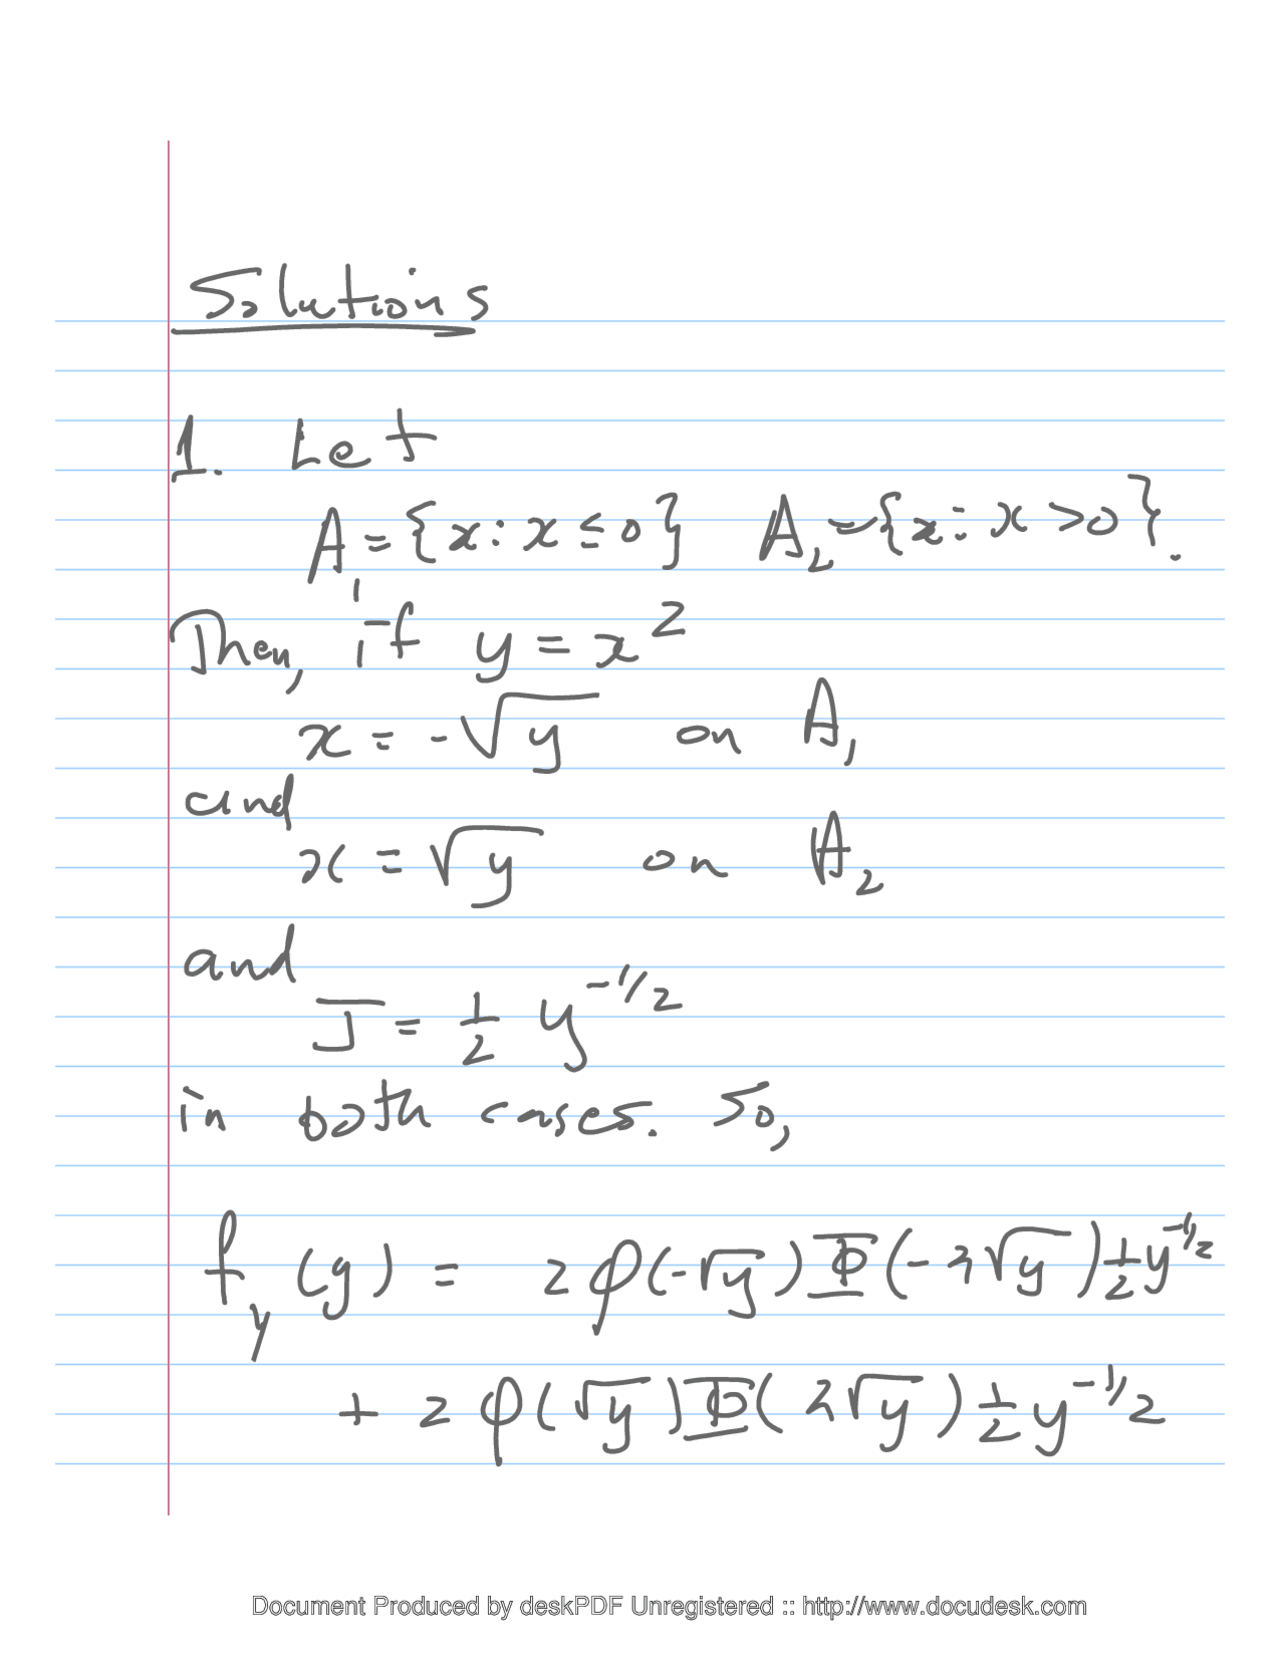 Solutions
1. Let
A₁ = {x : x ≤ 0} A₂ = {x : x > 0}.
Then, if y = x²
x = -√y on A₁
and
x = √y on A₂
and
J = ½ y^{-1/2}
in both cases. So,
f_Y(y) = 2ϕ(-√y)Φ(-λ√y)½y^{-1/2}
+ 2ϕ(√y)Φ(λ√y)½y^{-1/2}
Document Produced by deskPDF Unregistered :: http://www.docudesk.com